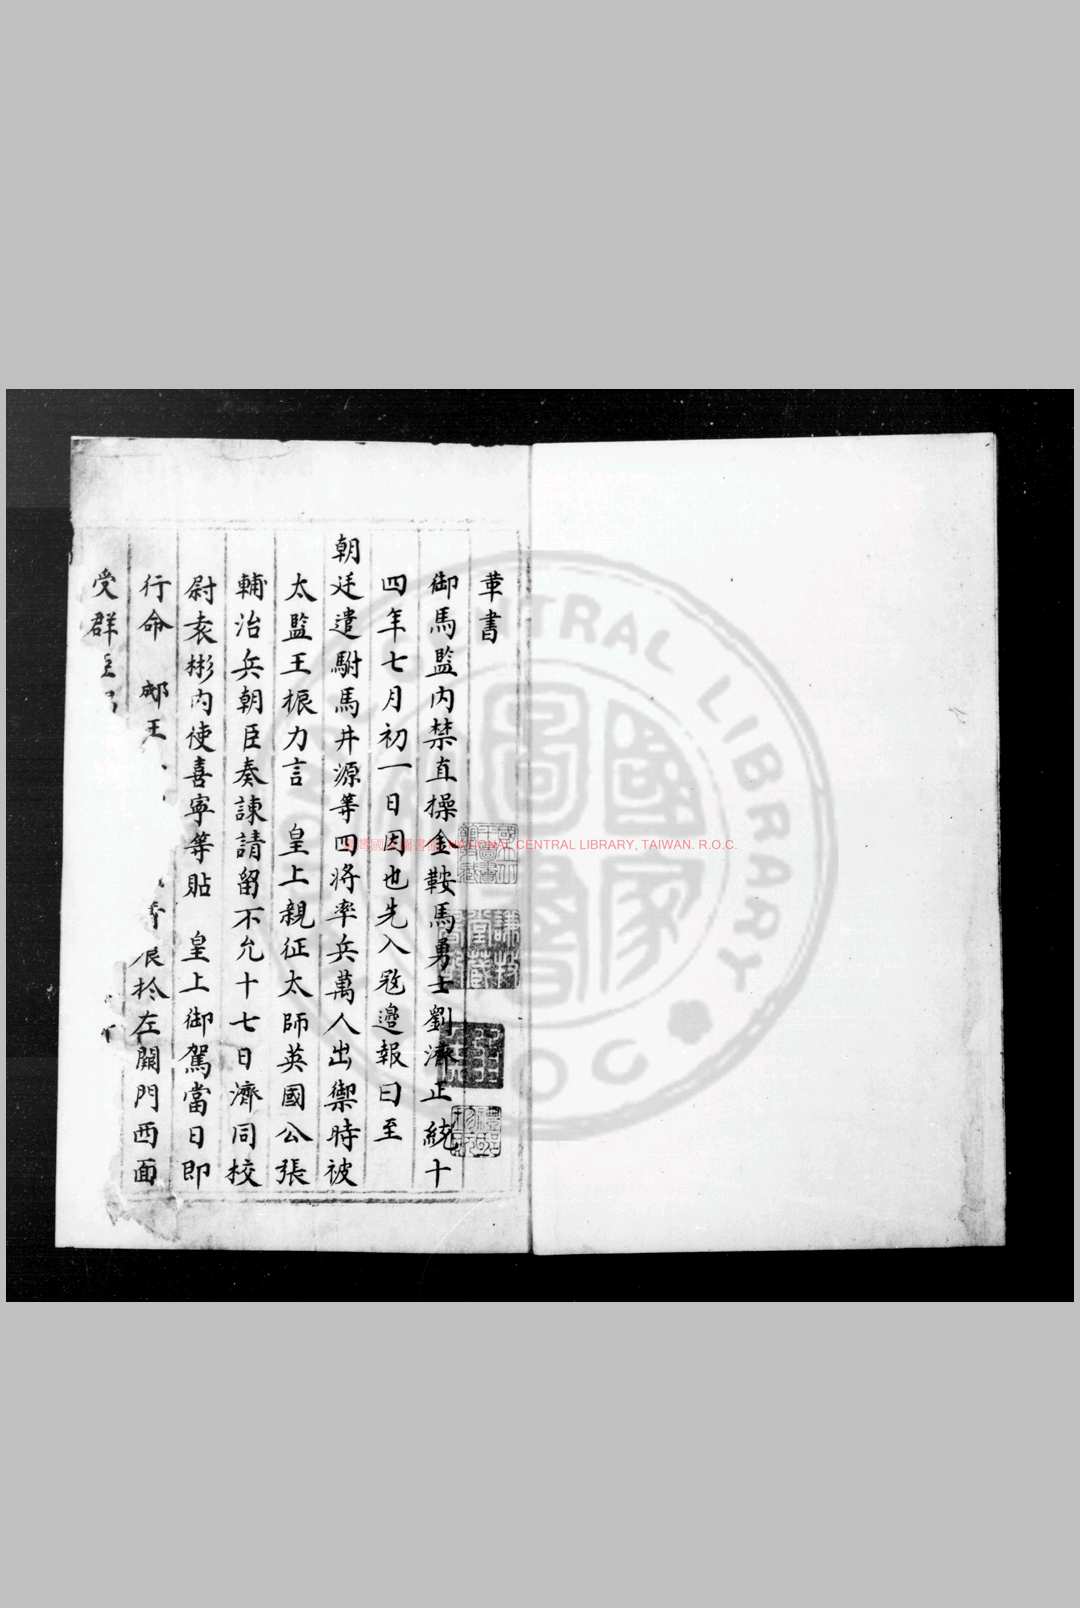 革書
御馬監內禁直操金鞍馬勇士劉濟正統十
四年七月初一日因也先入寇邉報曰至
朝廷遣駙馬井源等四将率兵萬人出禦時被
太監王振力言　皇上親征太師英國公張
輔治兵朝臣奏諫請留不允十七日濟同校
尉袁彬内使喜寧等貼　皇上御駕當日即
行命　郕王　扵左闕門西面
受群
NATIONAL CENTRAL LIBRARY, TAIWAN. R.O.C.